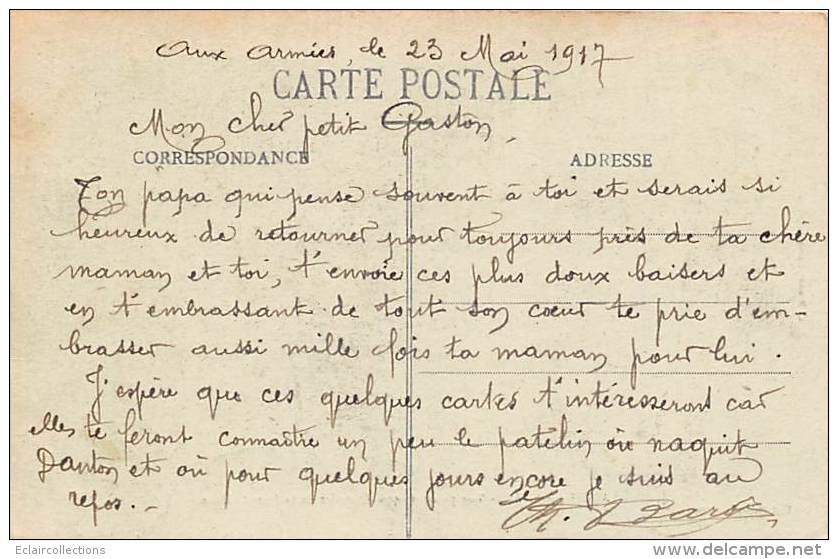 Aux armées, le 23 Mai 1917
CARTE POSTALE
Mon cher petit Gaston,
CORRESPONDANCE
ADRESSE
Ton papa qui pense souvent à toi et serais si
heureux de retourner pour toujours près de ta chère
maman et toi, t'envoie ces plus doux baisers et
en t'embrassant de tout son coeur te prie d'em-
brasser aussi mille fois ta maman pour lui.
J'espère que ces quelques cartes t'intéresseront car
elles te feront connaître un peu le patelin où naquit
Danton et où pour quelques jours encore je suis au
repos.-
Eclaircollections
www.delcampe.net